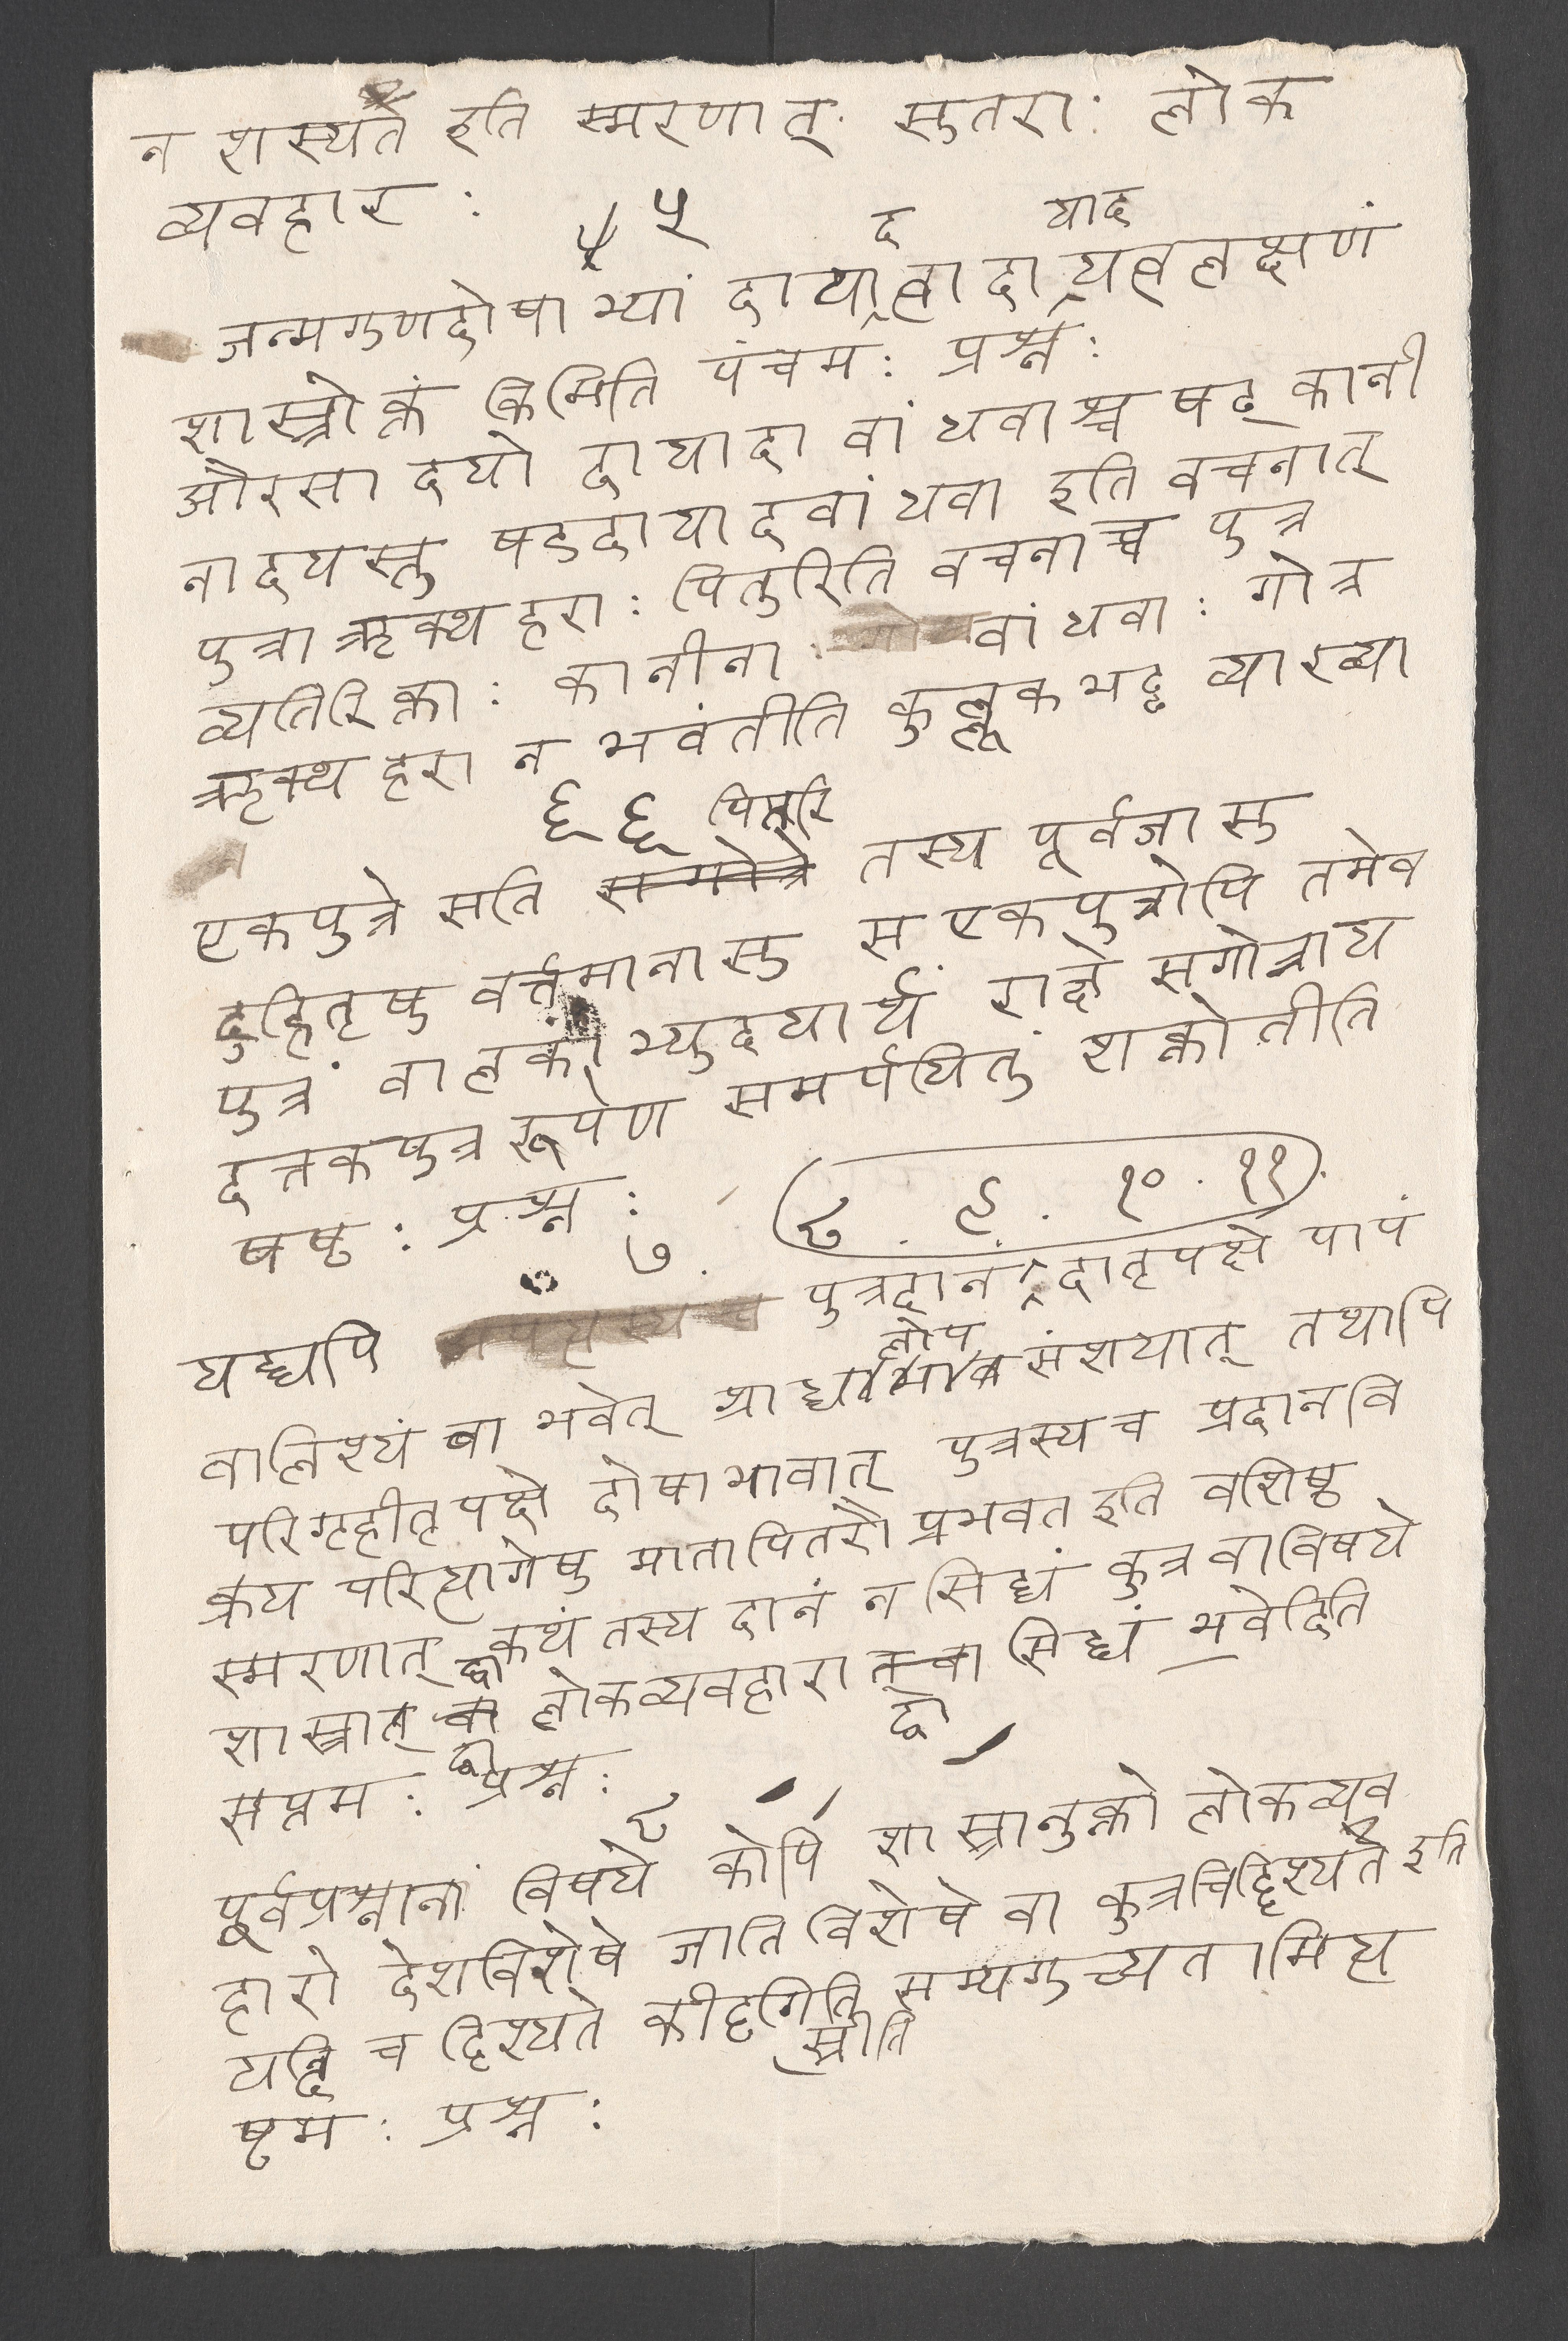 न शस्यते इति स्मरणात् सुतरा: लोक
व्यवहार :
५ ५
द याद
जन्मगुणदोषाभ्यां दायात्वादायत्वलक्षणं
शास्त्रोक्तं किमिति पंचम: प्रश्न:
औरसा दयो दायादा वांधवाश्च षट् कानी
नादयस्तु षडदायादवांधवा इति वचनात्
पुत्रा ऋक्थ हरा: पितुरिति वचनाच्च पुत्र
व्यतिरिक्ता: कानीना: वांधवा: गोत्र
ऋक्थ हरा न भवंतीति कुल्लूकभट्ट व्याख्या
६ ६ पितरि
एकपुत्रे सति सगोत्रे तस्य पूर्वजासु
दुहितृषु वर्त्तमानासु स एकपुत्रोपि तमेव
पुत्रं वालकाभ्युदयार्थं राज्ञे सगोत्राय
दत्तकपुत्र रूपेण समर्पयितुं शक्नोतीति
षष्ठ: प्रश्न:
७. ८. ९. १०. ११.
यद्यपि पुत्रदानं दातृपक्षे पापं
लोप
वालिश्यं वा भवेत् श्राद्धा संशयात् तथापि
परिगृहीतृपक्षे दोषाभावात् पुत्रस्य च प्रदानवि
क्रय परित्यागेषु मातापितरौ प्रभवत इति वशिष्ठ
स्मरणात् कथं तस्य दानं न सिद्धं कुत्र वा विषये
शास्त्रात् वा लोकव्यवहारात् वा सिद्धं भवेदिति
द्वा
सप्तम: प्रश्न:
८
पूर्वप्रश्नानां विषये कोपि शास्त्रानुक्तो लोकव्यव
हारो देशविशेषे जातिविशेषे वा कुत्रचिद्दिश्यते इति
यदि च दिश्यते कीदृगिति सम्यगुच्यतामित्य
स्तीति
ष्टम: प्रश्न: